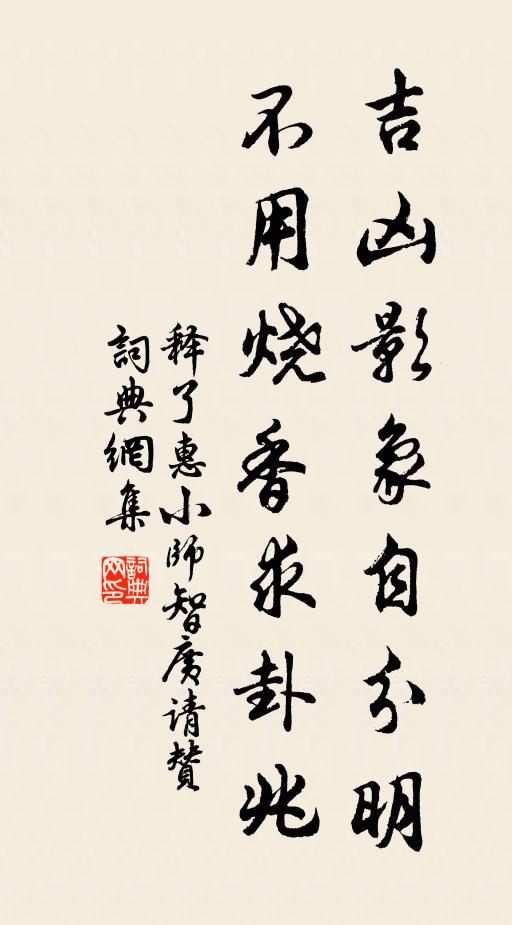 吉凶影象自分明
不用烧香求卦兆
释了惠小师智广请赞
詞典網集
詞典网印